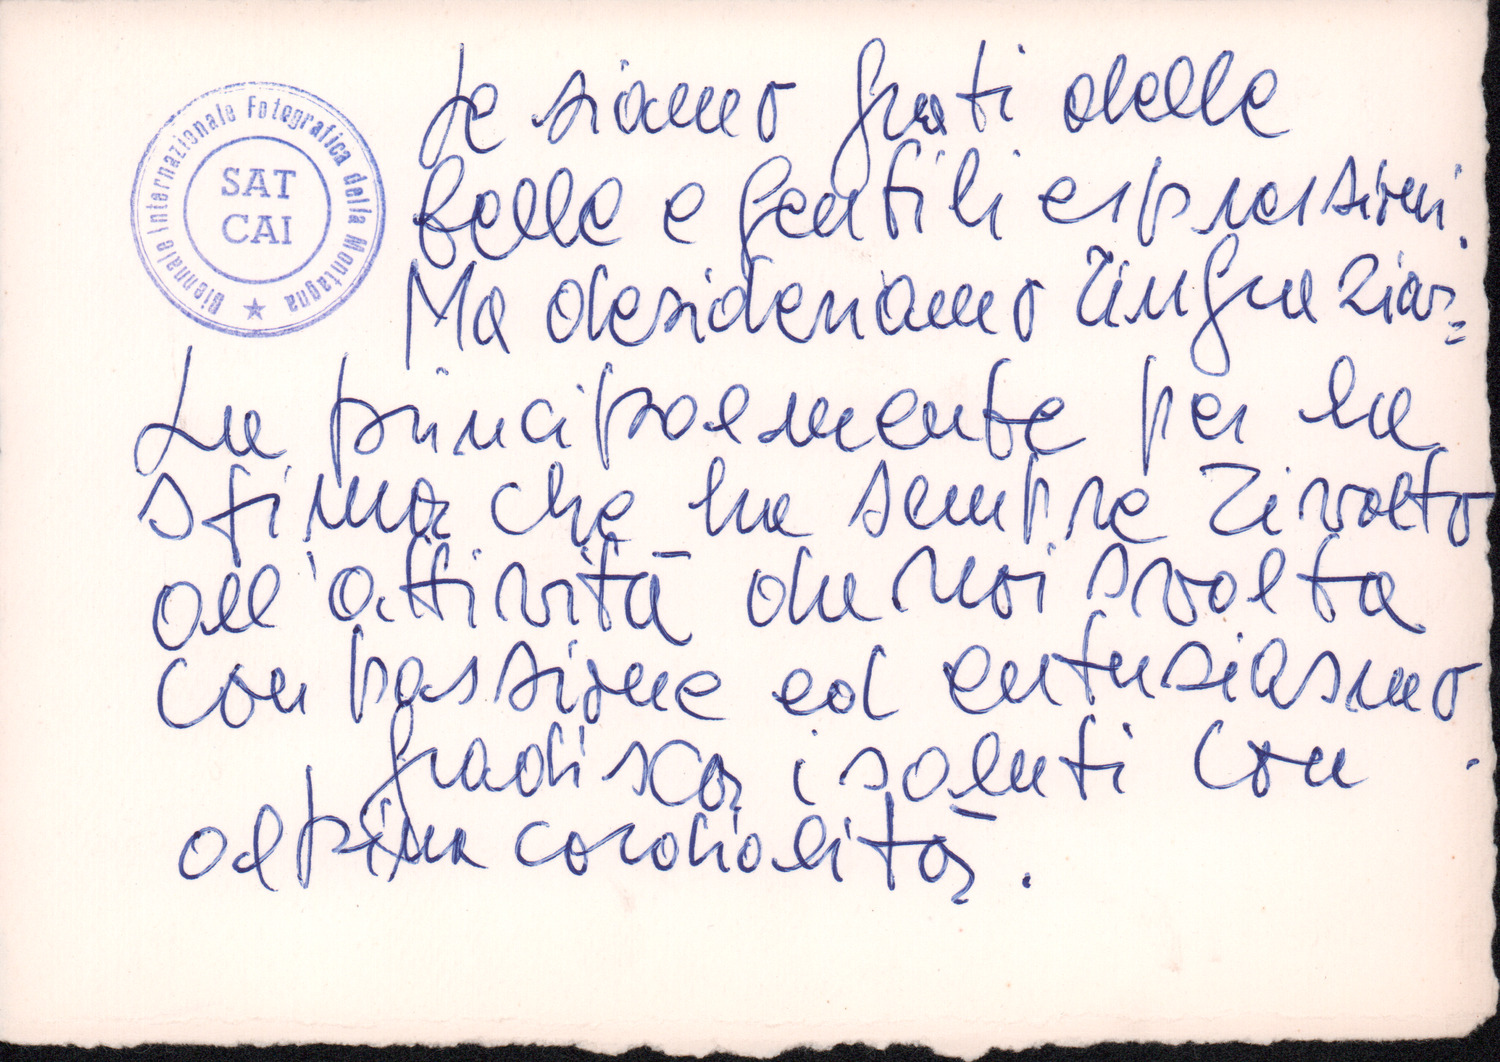 Biennale Internazionale Fotografica della Montagna
SAT
CAI
Le siamo grati delle
belle e gentili espressioni.
Ma desideriamo ringraziar=
La principalmente per la
stima che ha sempre rivolto
all'attività da noi svolta
con passione ed entusiasmo.
Gradisca i saluti con
alpina cordialità.